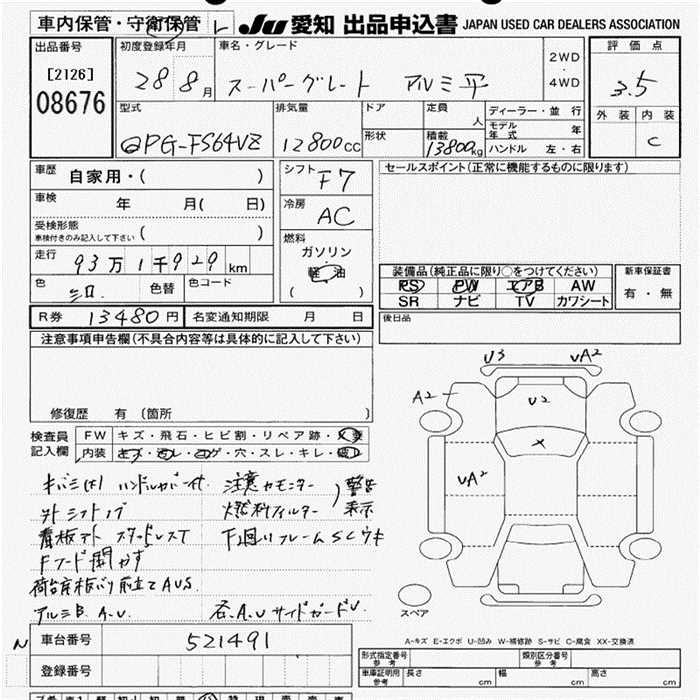 車内保管・守衛保管
JU 愛知 出品申込書 JAPAN USED CAR DEALERS ASSOCIATION
出品番号
[2126]
08676
初度登録年月
28 8月
車名・グレード
スーパーグレート アルミ平
2WD
・
4WD
評価点
3.5
外装 内装
C
型式
QPG-FS64VZ
排気量
12800cc
ドア
形状
定員
人
積載
13800kg
ディーラー・並行
モデル年式 年
ハンドル 左・右
車歴 自家用・( )
車検 年 月( 日)
受検形態
車検付きのみ記入して下さい ( )
走行 93万1千929km
色 シロ 色替 色コード
シフト F7
冷房 AC
燃料
ガソリン
軽・油
( )
R券 13480円 名変通知期限 月 日
セールスポイント(正常に機能するものに限ります)
装備品(純正品に限り○をつけてください)
PS PW エアB AW
SR ナビ TV カワシート
新車保証書
有・無
後日品
注意事項申告欄(不具合内容等は具体的に記入して下さい)
修復歴 有 (箇所 )
検査員
記入欄
FW キズ・飛石・ヒビ割・リペア跡・X要
内装 キズ・汚レ・コゲ・穴・スレ・キレ・破レ
キバミ(大) ハンドルカバー付
注意 カモニター
燃料フィルター
警告
表示
外ミラトブ
看板アト スタッドレスT
下廻リフレームSCウキ
Fフード開かず
荷台床板バリ 前立てAUS
アルミB A.U.
右A.Uサイドガード U.
U3
UA2
A2
U2
X
UA2
スペア
A-キズ E-エクボ U-凹み W-補修跡 S-サビ C-腐食 XX-交換済
N
車台番号 521491
登録番号
形式指定番号
参考
類別区分番号
参考
車庫証明用
参考
長さ cm 幅 cm 高さ cm